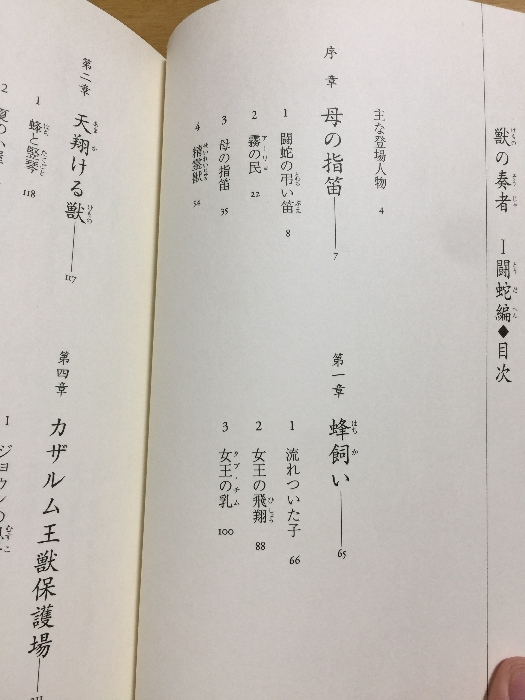 獣の奏者 Ⅰ闘蛇編◆目次
主な登場人物 4
序章 母の指笛 7
1 闘蛇の弔い笛 8
2 霧の民 22
3 母の指笛 35
4 精霊獣 54
第一章 蜂飼い 65
1 流れついた子 66
2 女王の飛翔 88
3 女王の乳 100
第二章 天翔ける獣 117
1 蜂と竪琴 118
2 夏の小屋
第四章 カザルム王獣保護場
1 ジョウンの息子